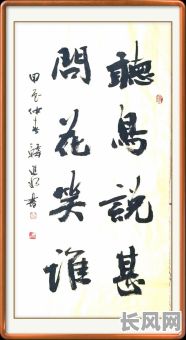 聽鳥說甚
問花笑誰
甲
書
长风网